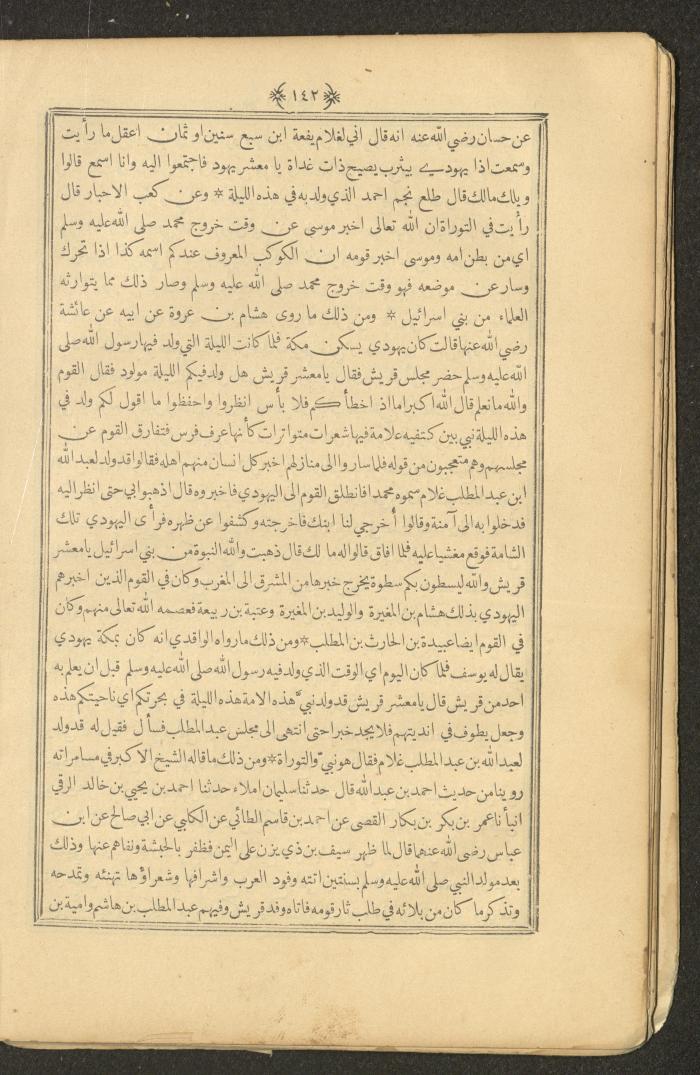 ١٤٢
عن حسان رضي الله عنه انه قال اني لغلام يفعة ابن سبع سنين او ثمان اعقل ما رأيت
وسمعت اذا يهودي بيثرب يصيح ذات غداة يا معشر يهود فاجتمعوا اليه وانا اسمع قالوا
ويلك مالك قال طلع نجم احمد الذي ولد به في هذه الليلة * وعن كعب الاحبار قال
رأيت في التوراة ان الله تعالى اخبر موسى عن وقت خروج محمد صلى الله عليه وسلم
اي من بطن امه وموسى اخبر قومه ان الكوكب المعروف عندكم اسمه كذا اذا تحرك
وسار عن موضعه فهو وقت خروج محمد صلى الله عليه وسلم وصار ذلك مما يتوارثه
العلماء من بني اسرائيل * ومن ذلك ما روى هشام بن عروة عن ابيه عن عائشة
رضي الله عنها قالت كان يهودي يسكن مكة فلما كانت الليلة التي ولد فيها رسول الله صلى
الله عليه وسلم حضر مجلس قريش فقال يا معشر قريش هل ولد فيكم الليلة مولود فقال القوم
والله ما نعلم قال الله اكبر اما اذ اخطأكم فلا بأس انظروا واحفظوا ما اقول لكم ولد في
هذه الليلة نبي بين كتفيه علامة فيها شعرات متواترات كأنها عرف فرس فتفارق القوم عن
مجلسهم وهم متعجبون من قوله فلما ساروا الى منازلهم اخبر كل انسان منهم اهله فقالوا قد ولد لعبد الله
ابن عبد المطلب غلام سموه محمدا فانطلق القوم الى اليهودي فاخبروه قال اذهبوا بي حتى انظر اليه
فدخلوا به الى آمنة وقالوا أخرجي لنا ابنك فاخرجته وكشفوا عن ظهره فرأى اليهودي تلك
الشامة فوقع مغشيا عليه فلما افاق قالوا له ما لك قال ذهبت والله النبوة من بني اسرائيل يا معشر
قريش والله ليسطون بكم سطوة يخرج خبرها من المشرق الى المغرب وكان في القوم الذين اخبرهم
اليهودي بذلك هشام بن المغيرة والوليد بن المغيرة وعتبة بن ربيعة فعصمه الله تعالى منهم وكان
في القوم ايضا عبيدة بن الحارث بن المطلب * ومن ذلك ما رواه الواقدي انه كان بمكة يهودي
يقال له يوسف فلما كان اليوم اي الوقت الذي ولد فيه رسول الله صلى الله عليه وسلم قبل ان يعلم به
احد من قريش قال يا معشر قريش قد ولد نبيّ هذه الامة هذه الليلة في بحرتكم اي ناحيتكم هذه
وجعل يطوف في انديتهم فلا يجد خبرا حتى انتهى الى مجلس عبد المطلب فسأل فقيل له قد ولد
لعبد الله بن عبد المطلب غلام فقال هو نبيّ والتوراة * ومن ذلك ما قاله الشيخ الاكبر في مسامراته
روينا من حديث احمد بن عبد الله قال حدثنا سليمان املاء حدثنا احمد بن يحيى بن خالد الرقي
انبأنا عمر بن بكر بن بكار القصى عن احمد بن قاسم الطائي عن الكلبي عن ابي صالح عن ابن
عباس رضي الله عنهما قال لما ظهر سيف بن ذي يزن على اليمن فظفر بالحبشة ونفاهم عنها وذلك
بعد مولد النبي صلى الله عليه وسلم بسنتين اتته وفود العرب واشرافها وشعراؤها تهنئه وتمدحه
وتذكر ما كان من بلائه في طلب ثار قومه فاتاه وفد قريش وفيهم عبد المطلب بن هاشم وامية بن